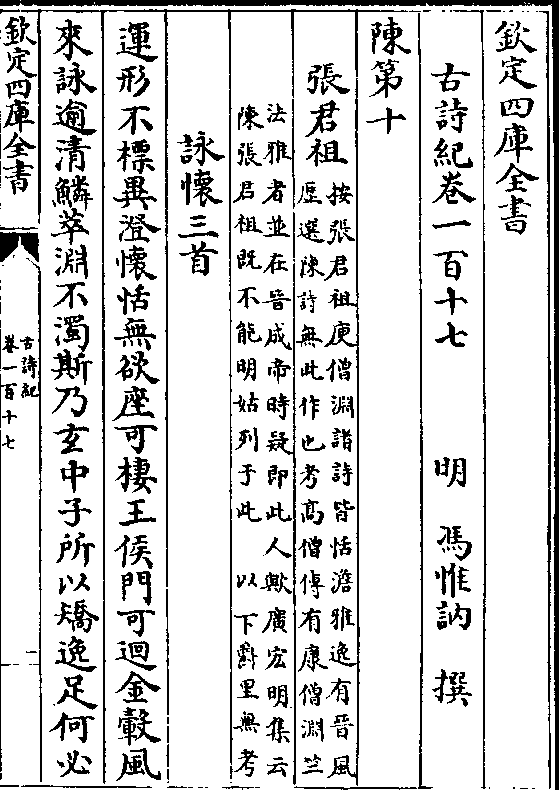 欽定四庫全書
古詩紀卷一百十七 明 馮惟訥 撰
陳第十
張君祖 按張君祖庾僧淵諸詩皆恬澹雅逸有晉風
歷選陳詩無此作也考高僧傳有康僧淵竺
法雅者並在晉成帝時疑即此人歟廣宏明集云
陳張君祖既不能明姑列于此 以下爵里無考
詠懷三首
運形不標異澄懷恬無欲座可棲王侯門可迴金轂風
來詠逾清鱗萃淵不濁斯乃玄中子所以矯逸足何必
欽定四庫全書
古詩紀
卷一百十七
一